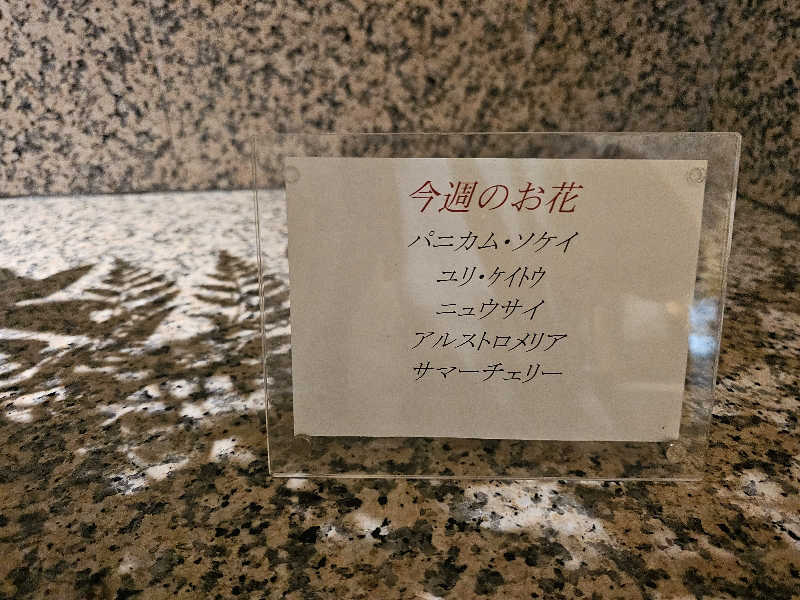 今週のお花
パニカム・ソケイ
ユリ・ケイトウ
ニュウサイ
アルストロメリア
サマーチェリー